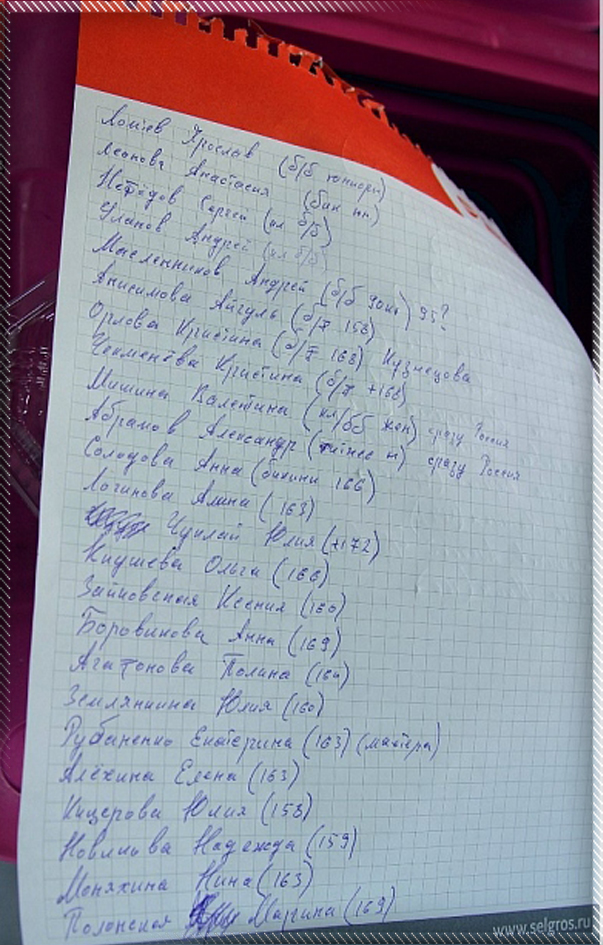 Ломев Ярослав (б/б юниоры)
Леонова Анастасия (бик юн)
Нефёдов Сергей (кл б/б)
Уланов Андрей (кл б/б)
Масленников Андрей (б/б 90кг) 95?
Анисимова Айгуль (б/ф 158)
Орлова Кристина (б/ф 168) Кузнецова
Чекменёва Кристина (б/ф +168)
Мишина Валетина (кл/бб жен) сразу Россия
Абрамов Александр (фитнес м) сразу Россия
Солодова Анна (бикини 166)
Логинова Алина (163)
Чуплай Юлия (+172)
Кнушева Ольга (166)
Зайковская Ксения (160)
Боровикова Анна (169)
Агафонова Полина (164)
Землянкина Юлия (160)
Рубаненко Екатерина (163) (мастера)
Алёхина Елена (163)
Кицерова Юлия (158)
Новликова Надежда (159)
Моняхина Нина (163)
Полонская Марина (169)
www.selgros.ru